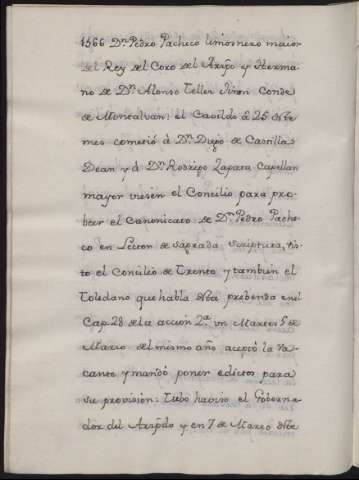 1566 Dn. Pedro Pacheco limosnero maior
del Rey del Coro del Arzpo y Herma
no de Dn. Alonso Tellez Jiron Conde
de Montalvan: el Cavildo á 25 dhe
mes cometió á Dn. Diego de Castilla
Dean y á Dn. Rodrigo Zapata Capellan
mayor viesen el Concilio para pro-
beer el Canonicato de Dn. Pedro Pache-
co en Lector de sagrada scriptura, vis-
to el Concilio de Trento y tambien el
Toledano que habla dha prebenda en el
Cap. 28 de la accion 2.ª un Martes 5 de
Marzo del mismo año aceptó la Va-
cante y mandó poner edictos para
su provision: Tubo haviso el Goberna-
dor del Arzpdo y en 7 de Marzo dhe